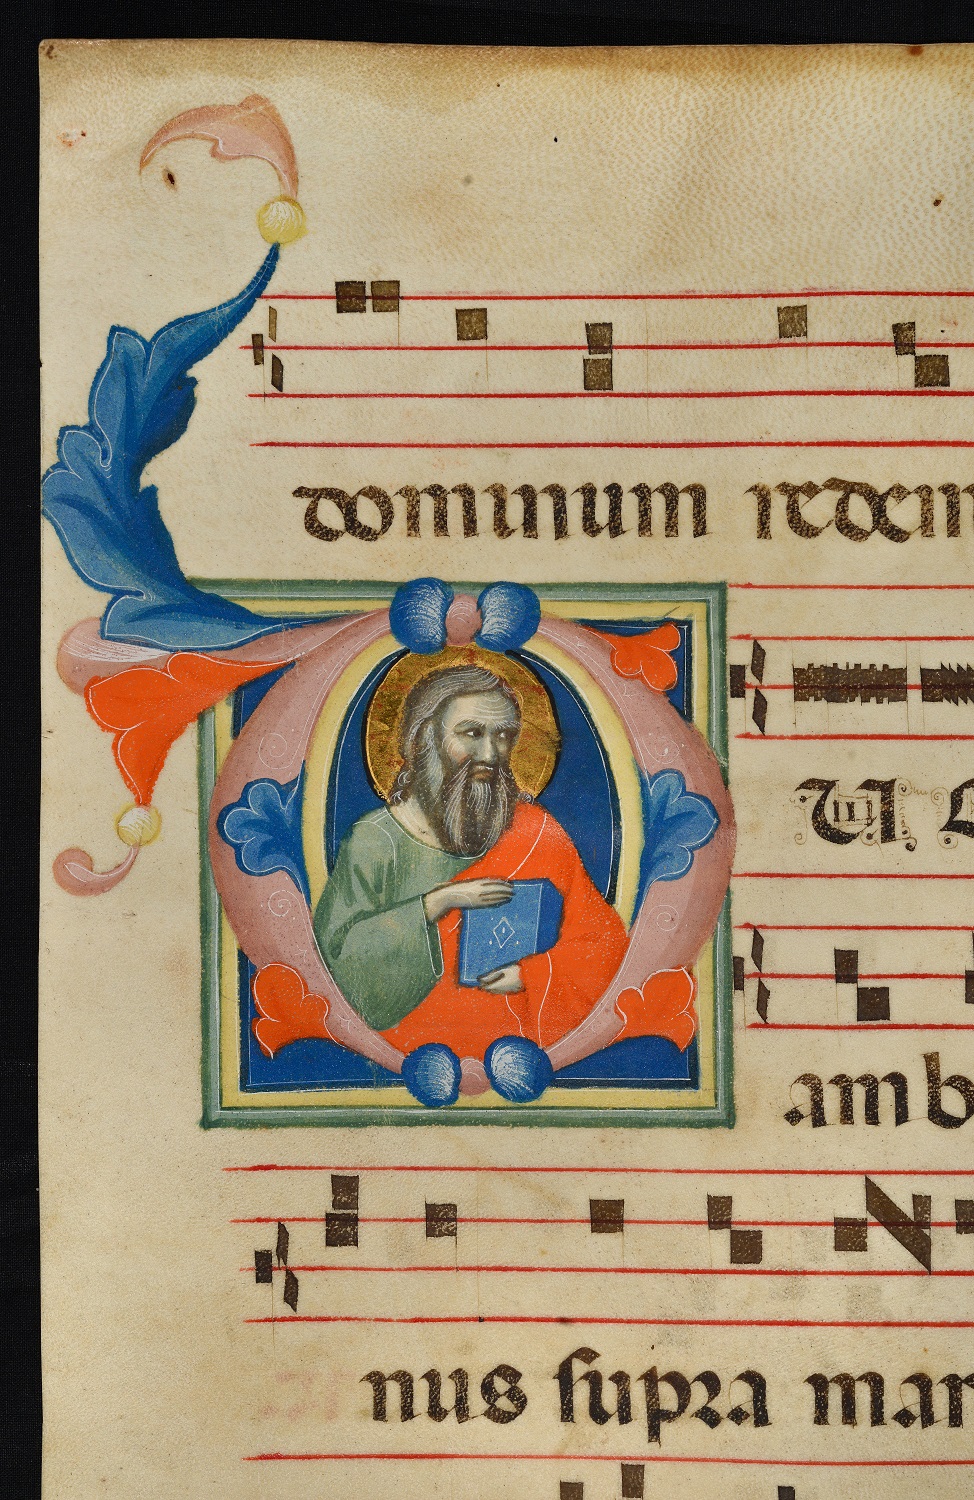 dominum redem
DUM
amb
nus supra mar